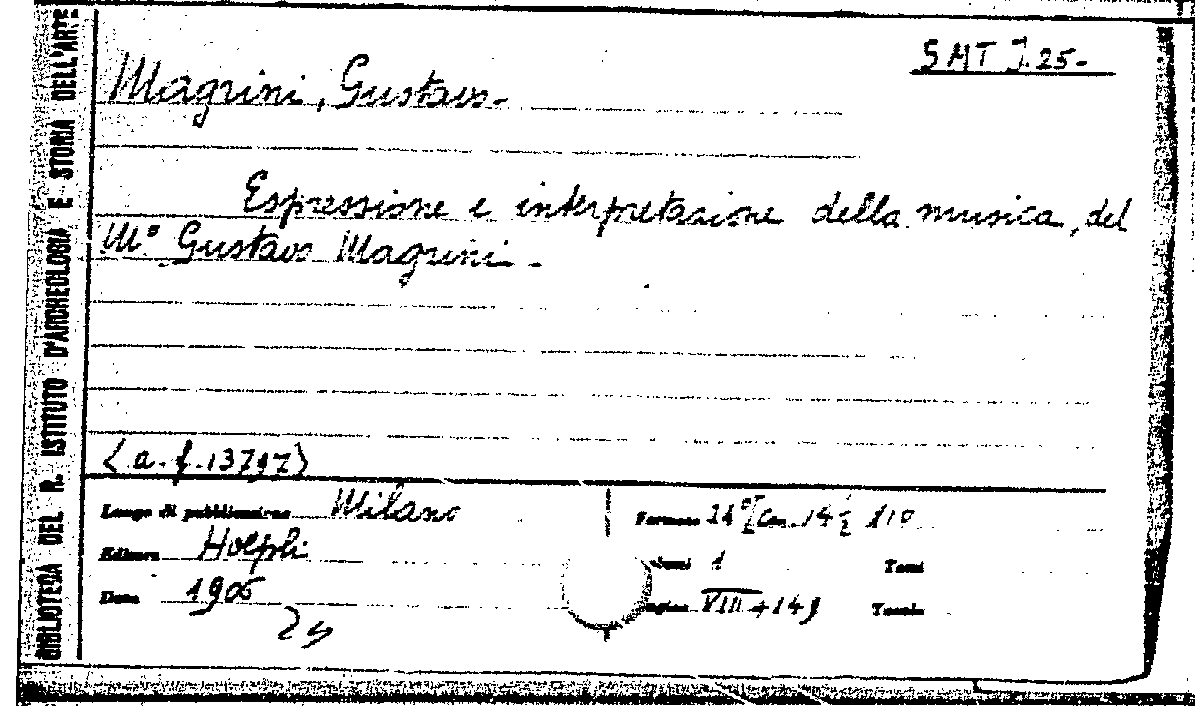 SMT J. 25-
Magrini, Gustavo.
Espressione e interpretazione della musica, del
M° Gustavo Magrini. -
(a. f. 13797)
Luogo di pubblicazione Milano
Formato cm. 14
Editore Hoepli
Volumi 1 Tomi
Data 1906
Pagine VIII+149 Tavole
24
BIBLIOTECA DEL R. ISTITUTO D'ARCHEOLOGIA E STORIA DELL'ARTE